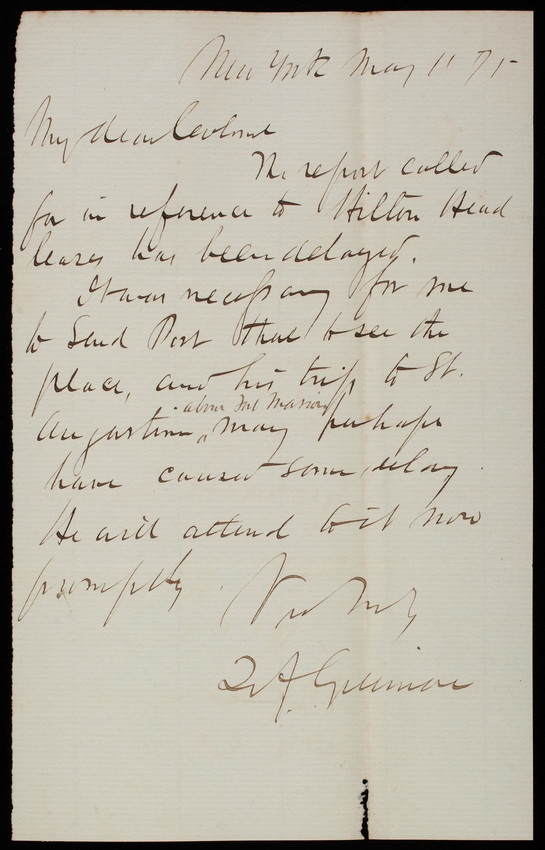 New York May 1' 75
My dear Colonel
The report called
for in reference to Hilton Head
leases has been delayed.
It was necessary for me
to send Post there to see the
place, and his trip to St.
Augustine
about Fort Marion
may perhaps
have caused some delay.
He will attend to it now
promptly.
Very Truly
Q A Gillmore